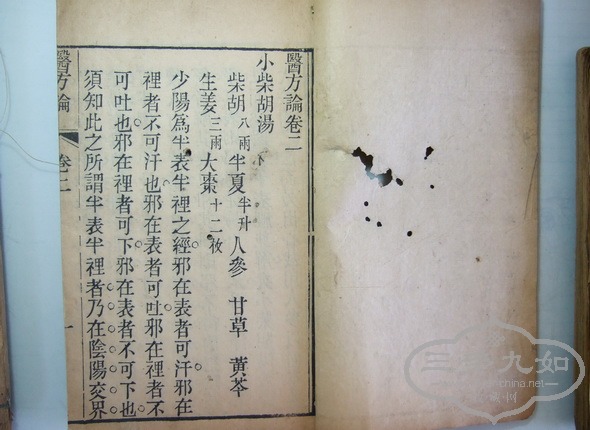 醫方論卷二
小柴胡湯
柴胡八兩 半夏半升 人參 甘草 黃芩
生姜三兩 大棗十二枚
少陽爲半表半裡之經邪在表者可汗邪在
裡者不可汗也邪在表者可吐邪在裡者不
可吐也邪在裡者可下邪在表者不可下也
須知此之所謂半表半裡者乃在陰陽交界
醫方論 卷二 一
九如
china.net